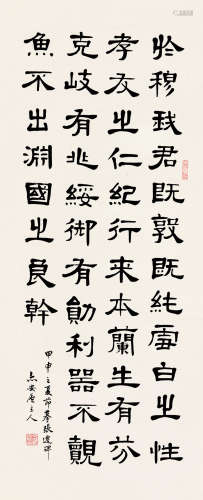 於穆我君既敦既純雪白之性
孝友之仁紀行来本蘭生有芬
克岐有兆綏御有勛利器不覿
魚不出淵國之良幹
甲申之夏節摹張遷碑
主人